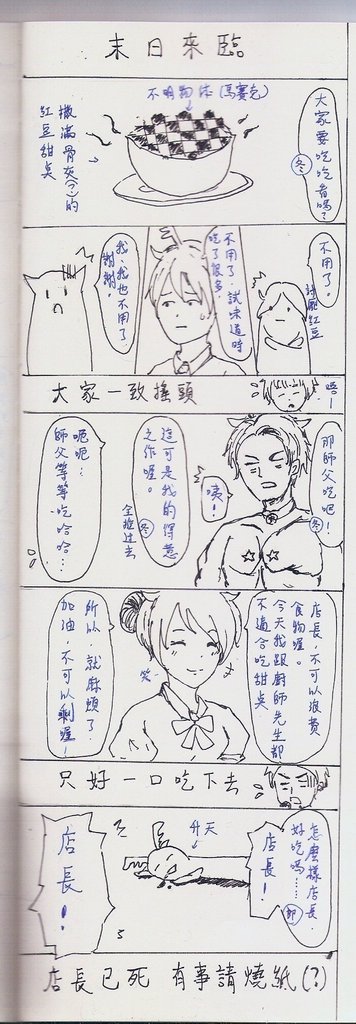 末日來臨
大家要吃吃看嗎?
冬
不明物体(馬賽克)
撒滿骨灰(?)的
紅豆甜奌
不用了。
討厭紅豆
不用了,試味道時
吃了很多.
我、我也不用了
謝謝。
大家一致搖頭
唔—
那師父吃吧!
冬
咦!
這可是我的得意
之作喔。
冬
全推过去
呃呃…
師父等等吃哈哈…
店長,不可以浪費
食物喔。
今天我跟廚師先生都
不適合吃甜奌
笑
所以,就麻煩了
加油,不可以剩喔!
只好一口吃下去
怎麼樣店長.
好吃嗎……
店長!
升天
店長!
店長已死 有事請燒紙(?)